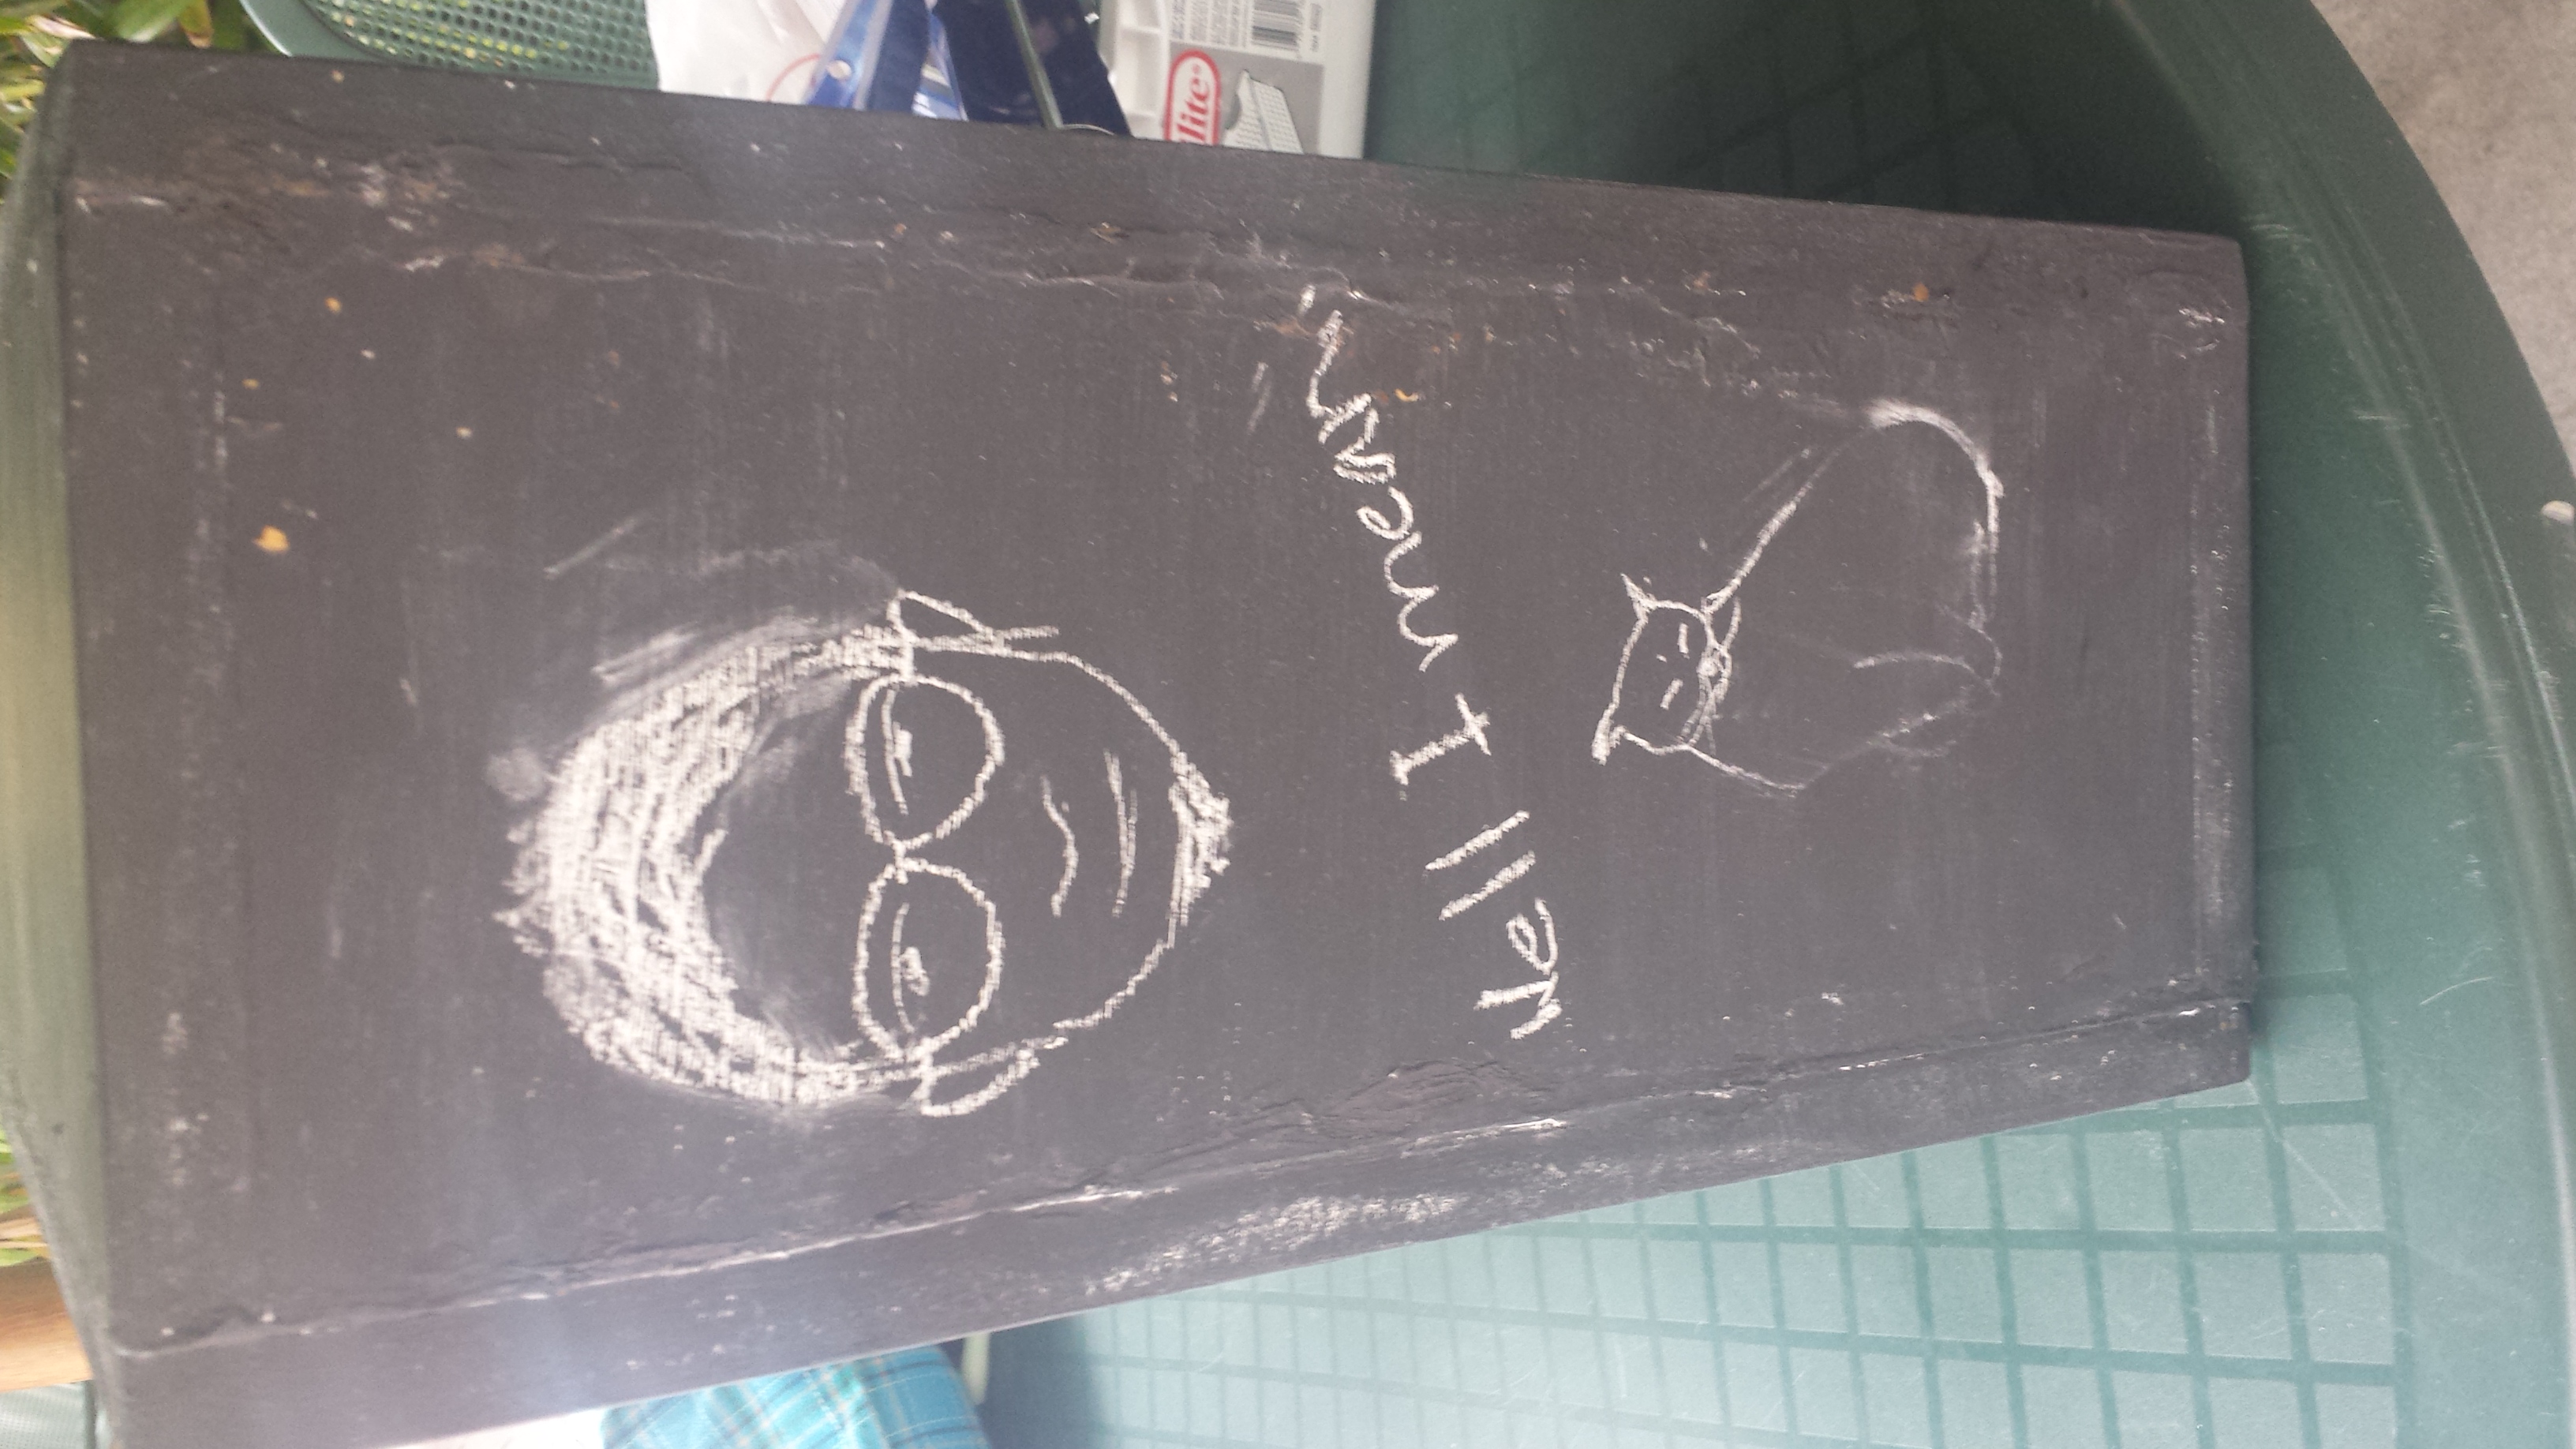 Well I mean..
lite®